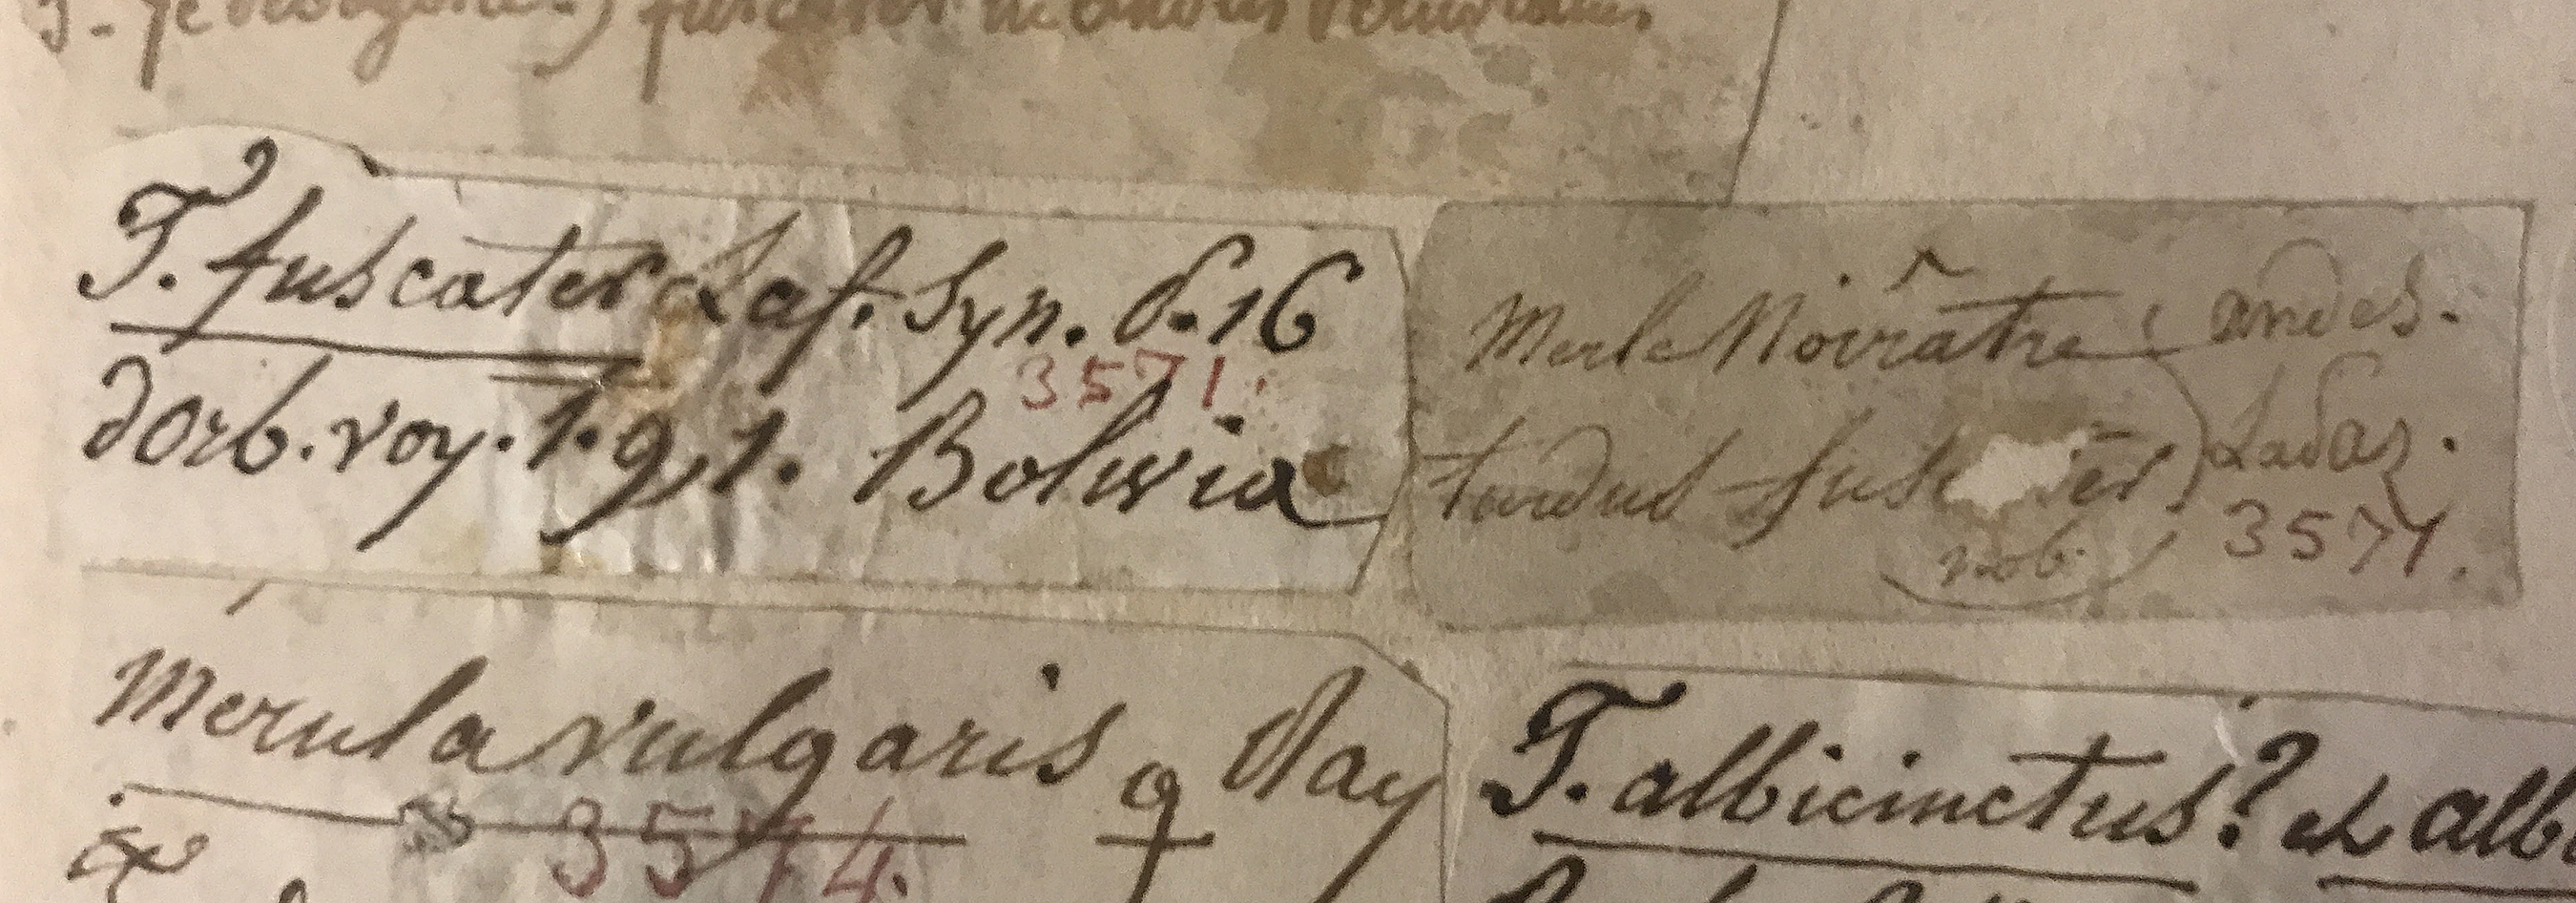 fuscater
T. fuscater Laf. Syn. p. 16
3571.
d'Orb. voy. t. 9, 1. Bolivia
Merle Noirâtre
andes.
turdus fusc ter.
Lapaz.
nob.
3571.
Merula vulgaris ♀ Ray
3574.
T. albicinctus? et alb
ex